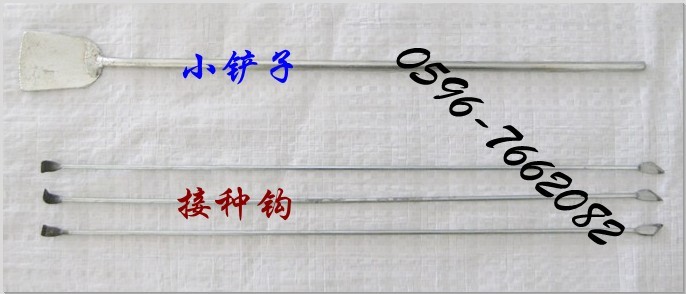 小铲子
0596-7662082
接种钩